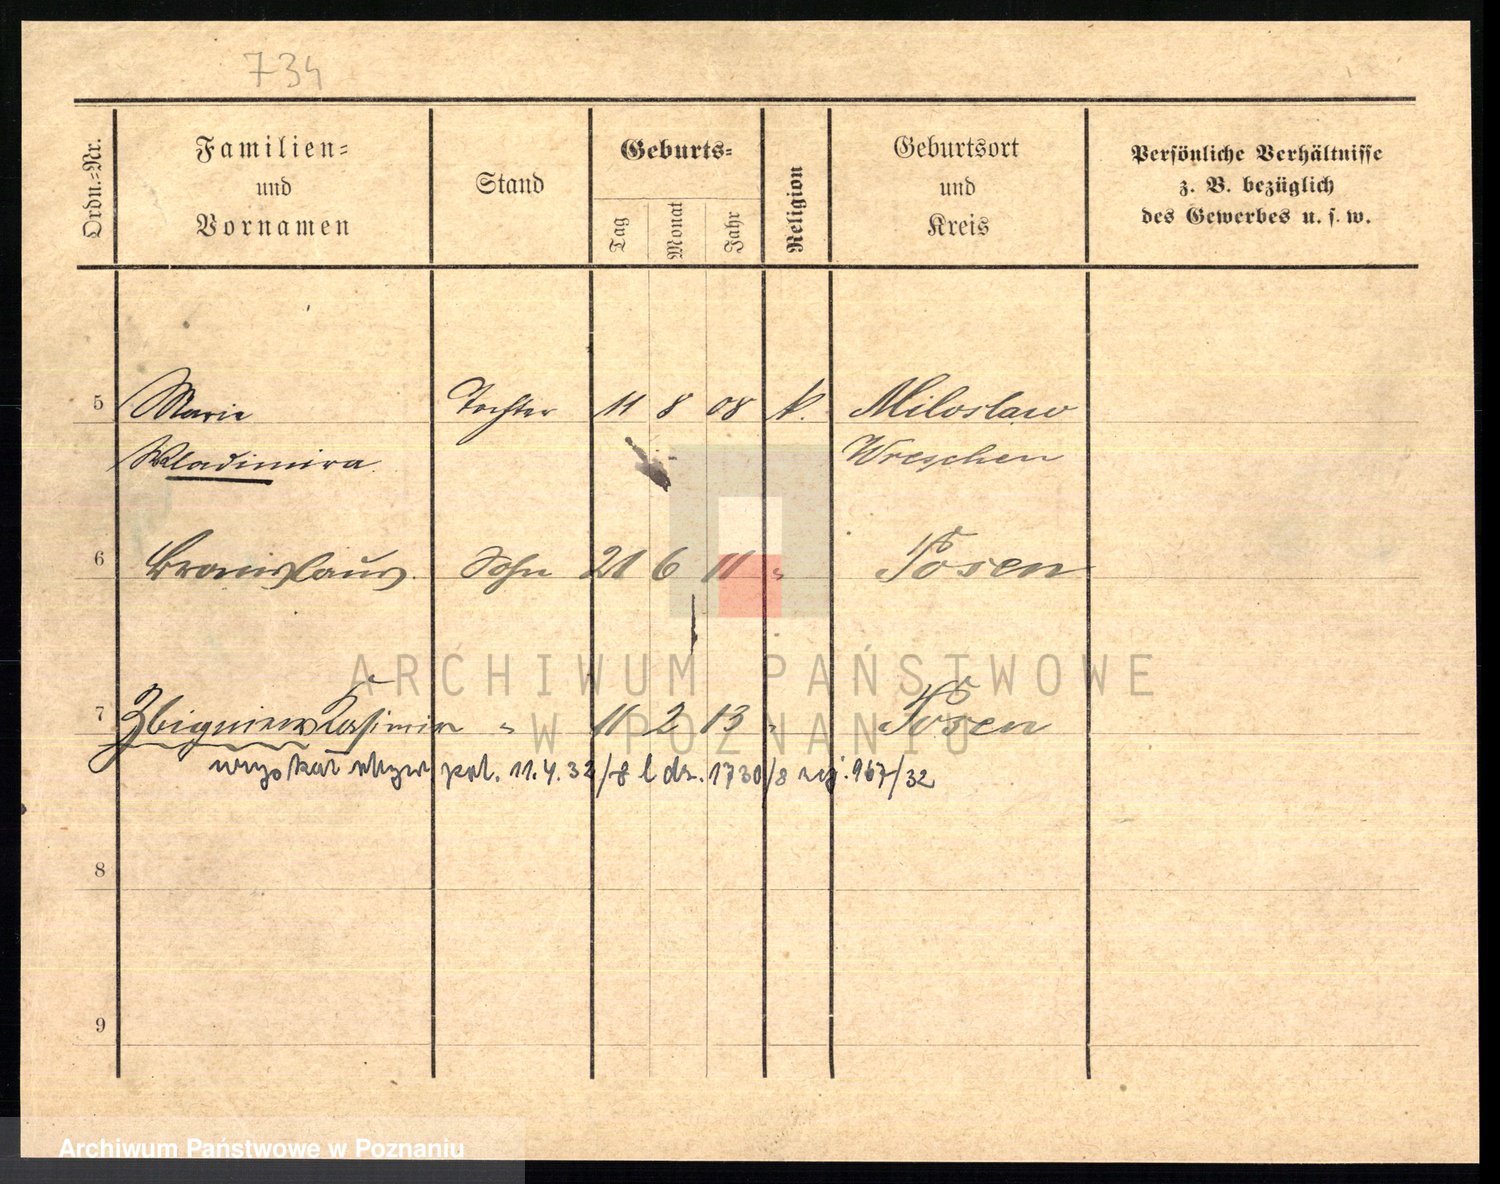 734
Ordn.-Nr.
Familien-
und
Vornamen
Stand
Geburts-
Tag
Monat
Jahr
Religion
Geburtsort
und
Kreis
Persönliche Verhältnisse
z. B. bezüglich
des Gewerbes u. s. w.
5 Marie Tochter 11 8 08 k. Miloslaw
Wladimira Wreschen
6 Bronislaus Sohn 21 6 11 " Posen
7 Zbigniew Kasimir " 11 2 13 " Posen
11.4.32/8 l dz. 1730/8 rej. 967/32
8
9
ARCHIWUM PAŃSTWOWE
W POZNANIU
Archiwum Państwowe w Poznaniu